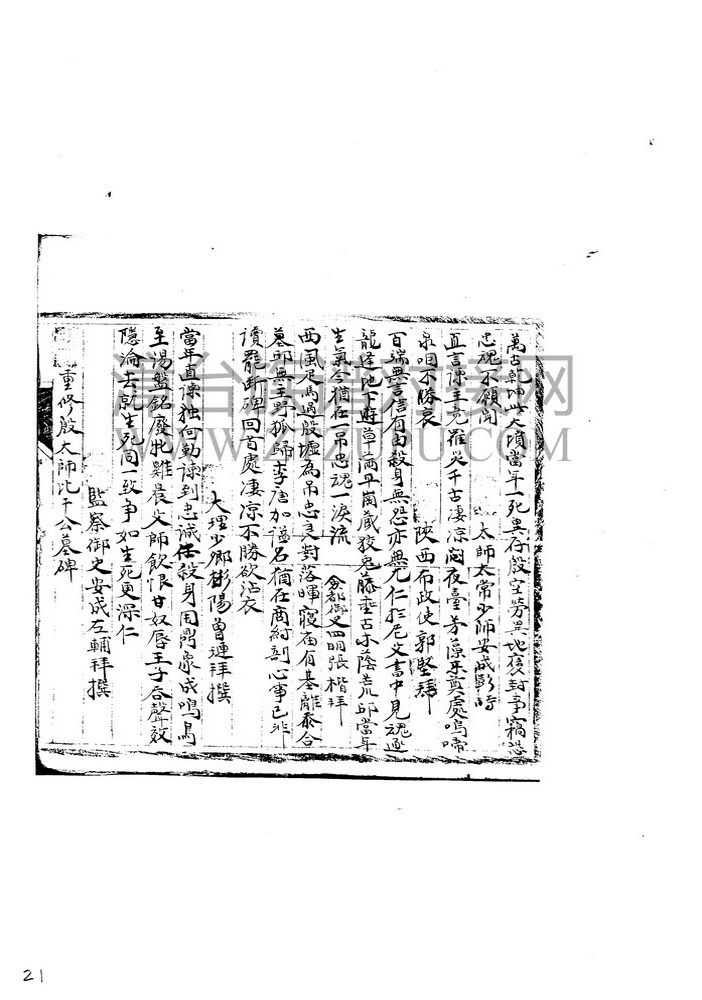 萬古乾坤此大墳當年一死異存殷空勞異地褒封予竊恐
忠魂不願聞
太師太常少師安成彭時
直言諫主竟罹災千古凄涼閟夜臺芳藻來奠處鳴啼
泉咽不勝哀
陝西布政使郭堅拜
百端無言信有由殺身無怨亦無尤仁於尼父書中見魂逐
龍逄地下遊草滿平崗藏狡兔藤垂古木蔭荒邱當年
生氣今猶在一吊忠魂一淚流
僉都御史四明張楷拜
西風疋馬過殷墟為吊忠良對落暉寢廟有基離黍合
墓邱無主野狐歸李唐加謚名猶在商紂剖心事已非
讀罷斷碑回首處凄涼不勝欲沾衣
大理少卿彬陽曾璉拜撰
當年直諫独何勤諫到忠誠任殺身周鼎象成鳴鳥
至湯盤銘廢牝雞晨父師飲恨甘奴辱王子吞聲效
隱淪去就生死同一致爭如生死更深仁
監察御史安成左輔拜撰
重修殷太師比干公墓碑
清台家譜对寻网
WWW.ZJZUPU.COM
21